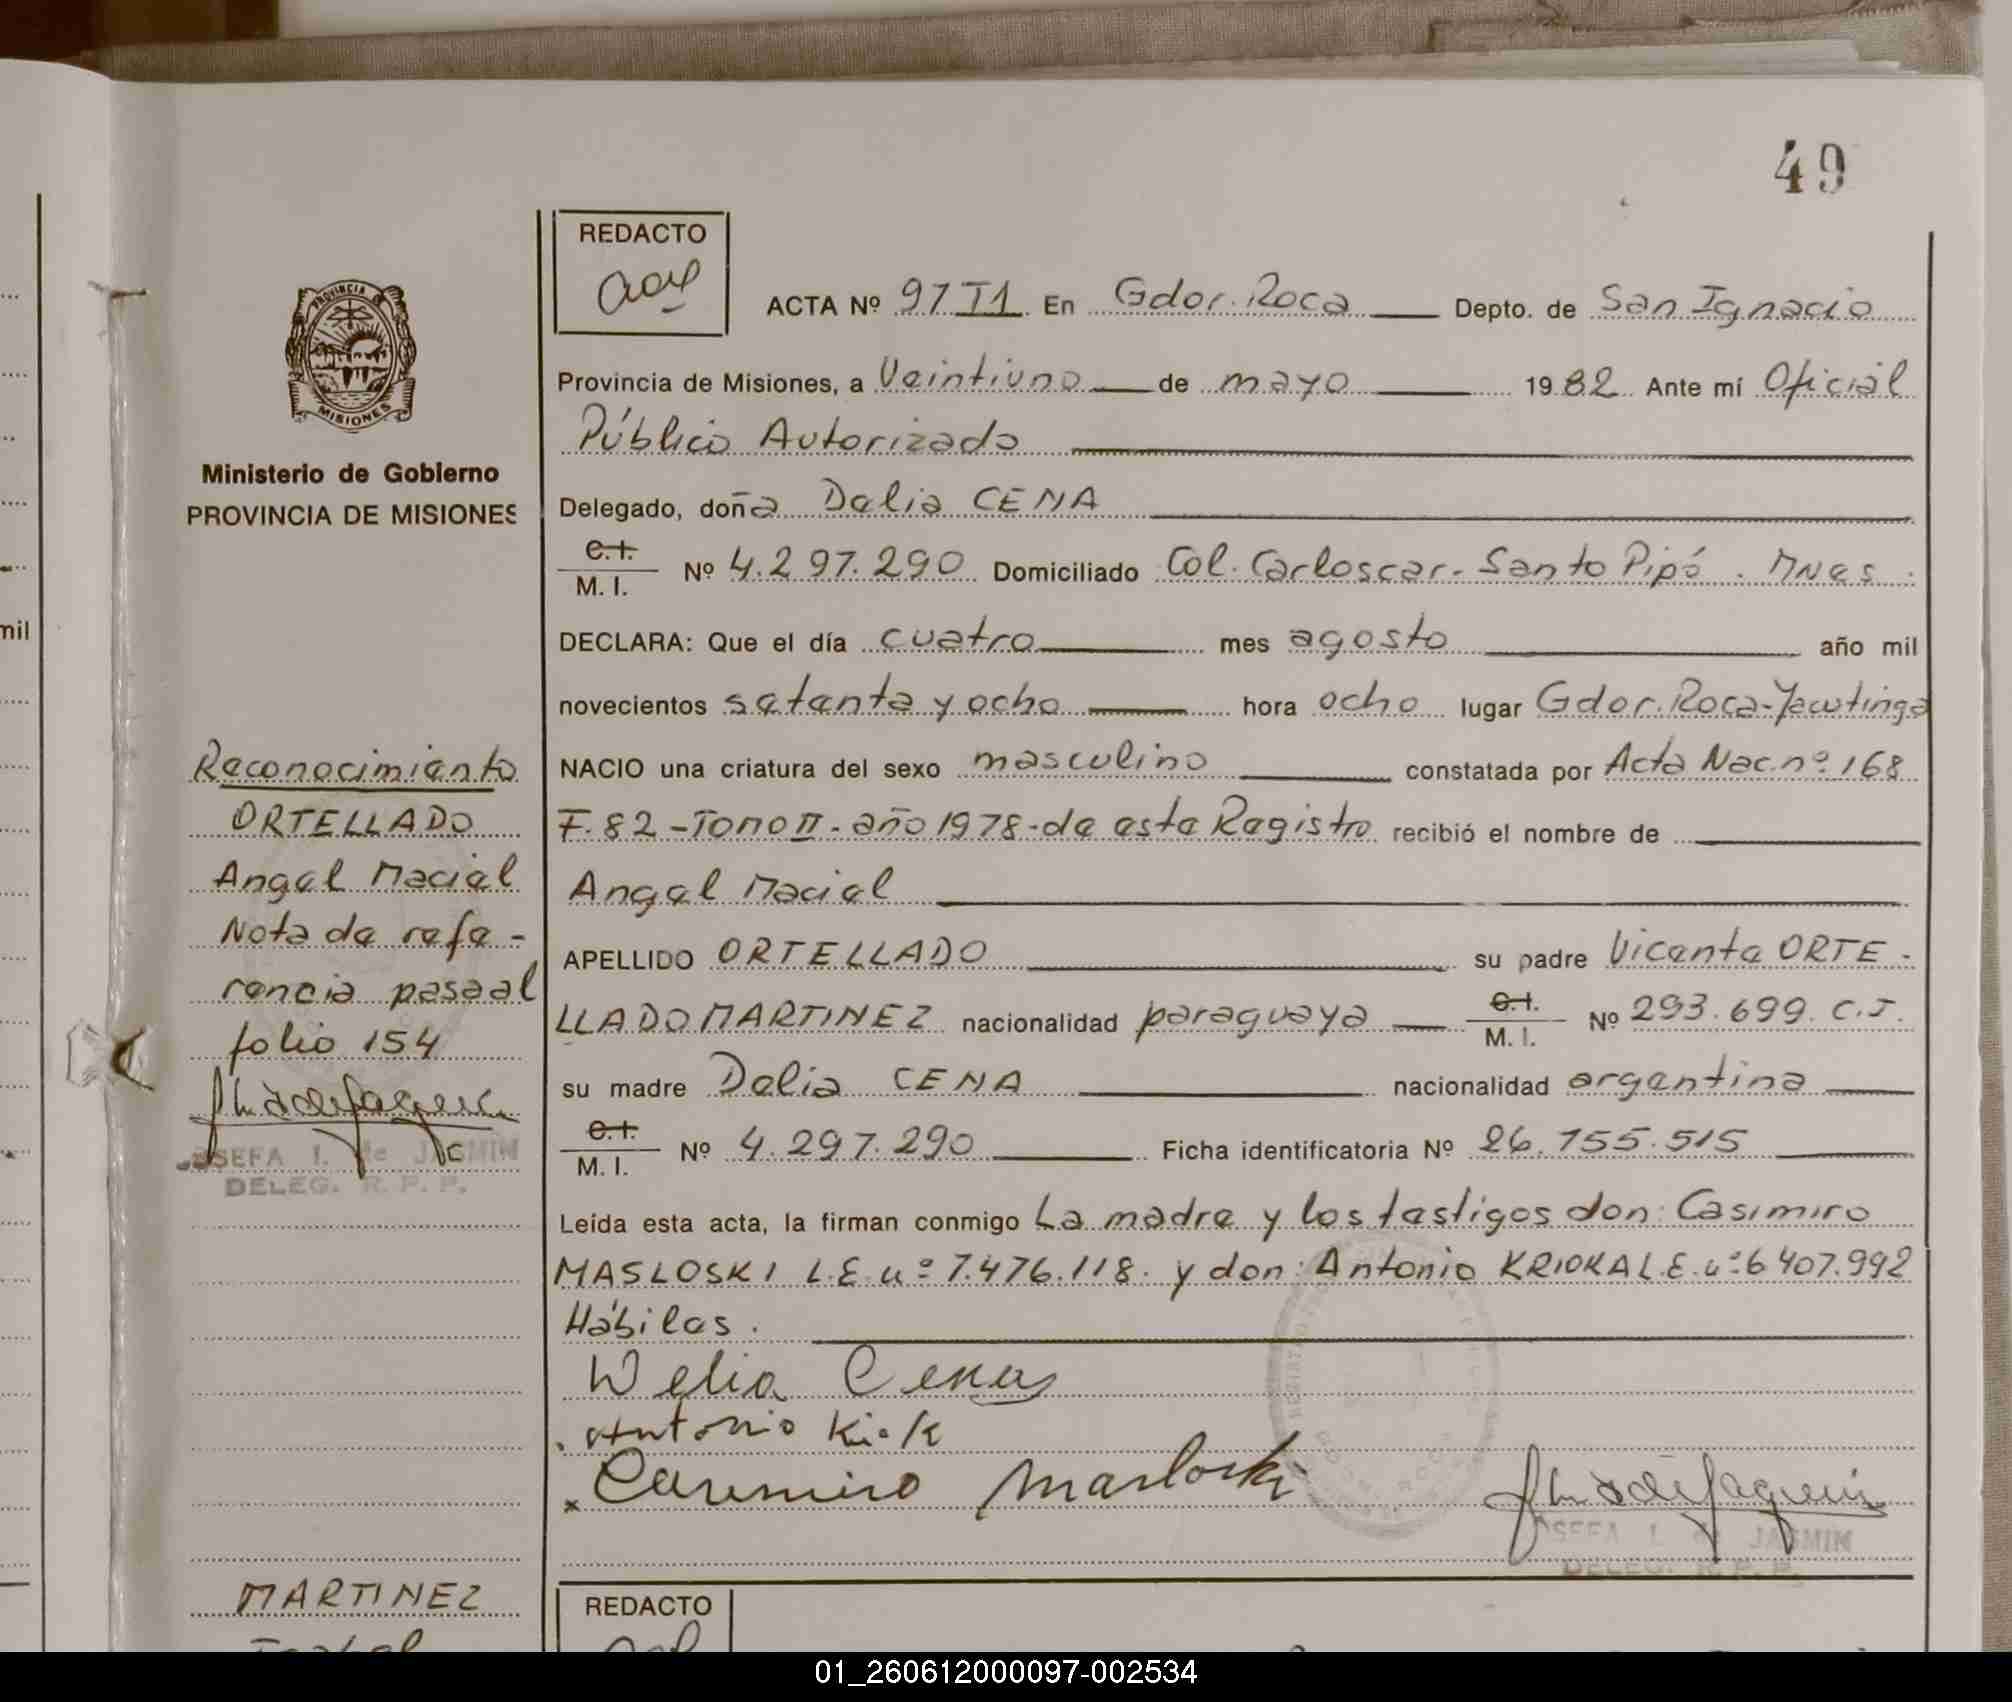 49
REDACTO
ACTA Nº 97 T1 En Gdor. Roca Depto. de San Ignacio
PROVINCIA DE
MISIONES
Ministerio de Gobierno
PROVINCIA DE MISIONES
Provincia de Misiones, a Veintiuno de mayo 1982 Ante mí Oficial
Público Autorizado
Delegado, doña Delia CENA
C.I.
M. I. Nº 4.297.290 Domiciliado Col. Carloscar - Santo Pipó. Mnes.
mil
DECLARA: Que el día cuatro mes agosto año mil
novecientos setenta y ocho hora ocho lugar Gdor. Roca - Yacutinga
NACIO una criatura del sexo masculino constatada por Acta Nac. nº 168
F. 82 - Tomo II - año 1978 - de este Registro recibió el nombre de
Angel Maciel
APELLIDO ORTELLADO su padre Vicente ORTE -
LLADO MARTINEZ nacionalidad paraguaya C.I. M. I. Nº 293.699. C.I.
su madre Delia CENA nacionalidad argentina
C.I.
M. I. Nº 4.297.290 Ficha identificatoria Nº 26.755.515
Leída esta acta, la firman conmigo La madre y los testigos don: Casimiro
MASLOSKI L.E. nº 7.476.118. y don: Antonio KRIOKA L.E. nº 6 407.992
Hábiles.
Delia Cena
Antonio
Casimiro Masloski
JOSEFA I. de JASMIN
DELEG. R. P. P.
Reconocimiento
ORTELLADO
Angel Maciel
Nota de refe -
rencia pasa al
folio 154
JOSEFA I. de JASMIN
DELEG. R. P. P.
MARTINEZ
REDACTO
01_260612000097-002534